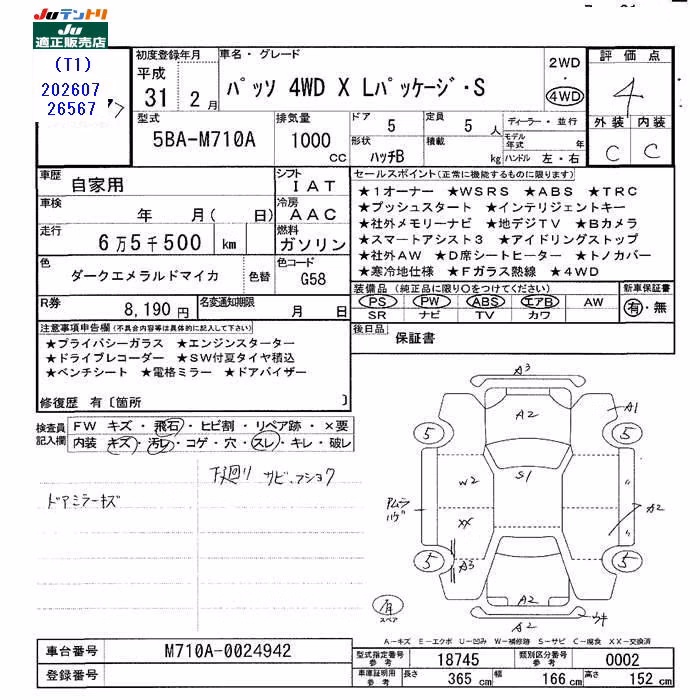 JUテントリ
JU
適正販売店
(T1)
202607
26567
初度登録年月
平成
31 2 月
車名・グレード
パッソ 4WD X Lパッケージ・S
2WD
・
4WD
評価点
4
外装 内装
C C
型式
5BA-M710A
排気量
1000
CC
ドア
5
定員
5 人
形状
ハッチB
積載
kg
ディーラー・並行
モデル年式 年
ハンドル 左・右
車歴
自家用
シフト
IAT
車検
年 月( 日)
冷房
AAC
走行
6万5千500 km
燃料
ガソリン
色
ダークエメラルドマイカ
色替
色コード
G58
R券
8,190円
名変通知期限
月 日
セールスポイント(正常に機能するものに限ります)
★1オーナー ★WSRS ★ABS ★TRC
★プッシュスタート ★インテリジェントキー
★社外メモリーナビ ★地デジTV ★Bカメラ
★スマートアシスト3 ★アイドリングストップ
★社外AW ★D席シートヒーター ★トノカバー
★寒冷地仕様 ★Fガラス熱線 ★4WD
装備品(純正品に限り○をつけてください)
PS PW ABS エアB AW
SR ナビ TV カワ
新車保証書
有・無
後日品
保証書
注意事項申告欄(不具合内容等は具体的に記入して下さい)
★プライバシーガラス ★エンジンスターター
★ドライブレコーダー ★SW付夏タイヤ積込
★ベンチシート ★電格ミラー ★ドアバイザー
修復歴 有〔箇所 〕
検査員記入欄
FW キズ・飛石・ヒビ割・リペア跡・×要
内装 キズ・汚レ・コゲ・穴・スレ・キレ・破レ
ドアミラーキズ
下廻り サビ・フショク
A3
A2
A1
5
5
S1
W2
XX
A2
A3
5
5
A2
A2
ウキ
スペア
A-キズ E-エクボ U-凹み W-補修跡 S-サビ C-腐食 XX-交換済
車台番号
M710A-0024942
登録番号
型式指定番号
参考
18745
類別区分番号
参考
0002
車庫証明用
参考
長さ 365 cm 幅 166 cm 高さ 152 cm